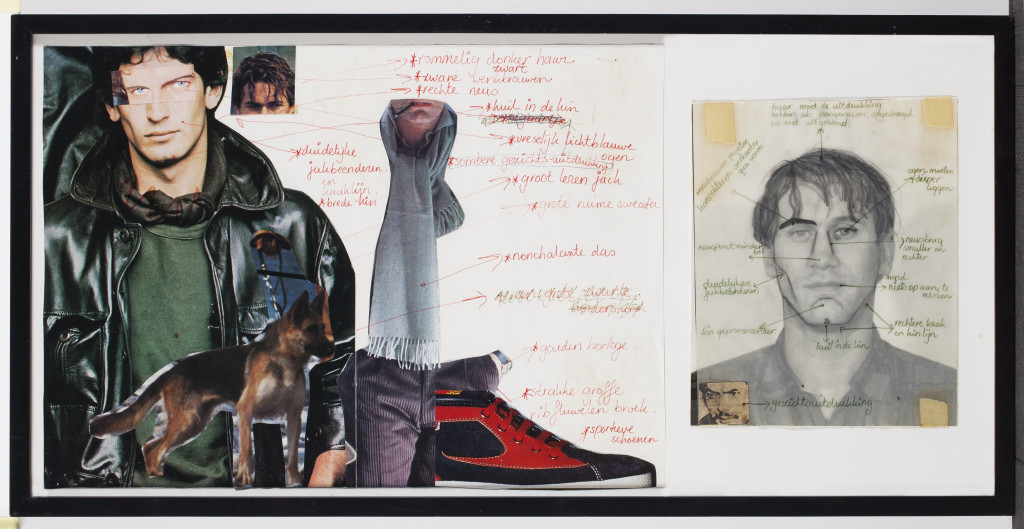 *rommelig donker haar
zwart
*zware wenkbrauwen
*rechte neus
*kuil in de kin
*vreselijk lichtblauwe
ogen
*duidelijke
jukbeenderen.
en
kaaklijn.
*brede kin
*sombere gezichts-uitdrukking
*groot leren jack
*grote ruime sweater
*nonchalante das
*gouden horloge.
*strakke groffe
ribfluwelen broek.
*sportieve
schoenen
haar moet de uitdrukking
hebben als
en niet uitgebeend.
ogen moeten
dieper
liggen
neuspunt minder
neusbrug
smaller en
rechter
duidelijker
jukbeenderen
mond
niets op aan te
merken
kin geprononceerder
kuil in de kin
rechtere kaak
en kin lijn
gezichtsuitdrukking